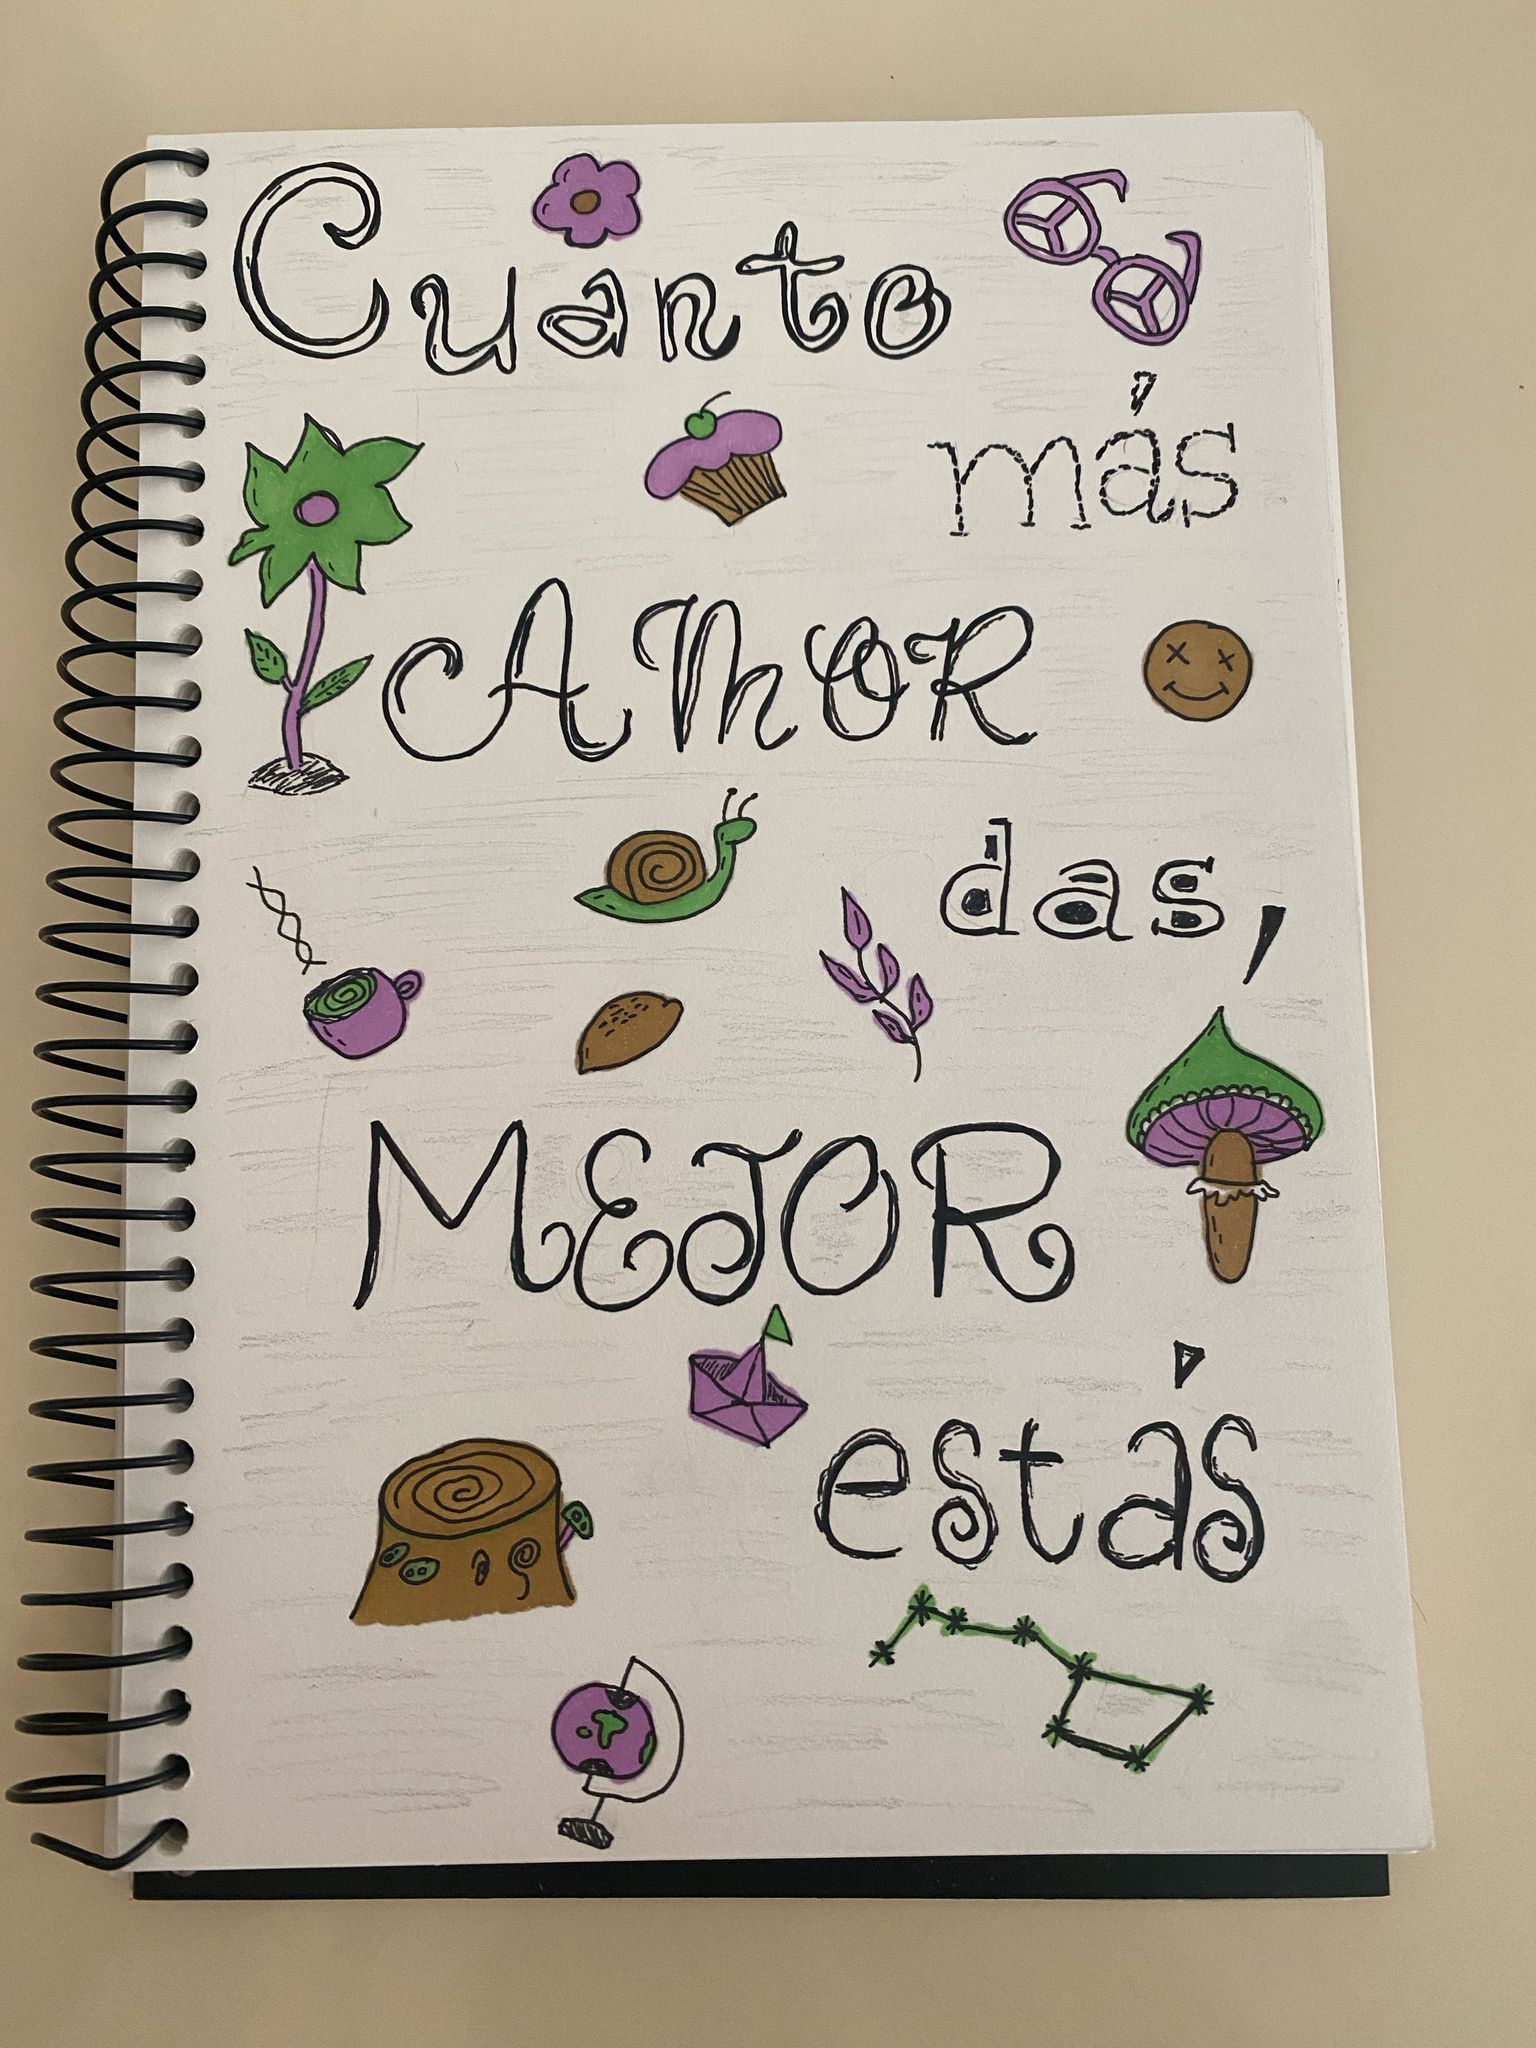 Cuanto
más
AMOR
das,
MEJOR
estás